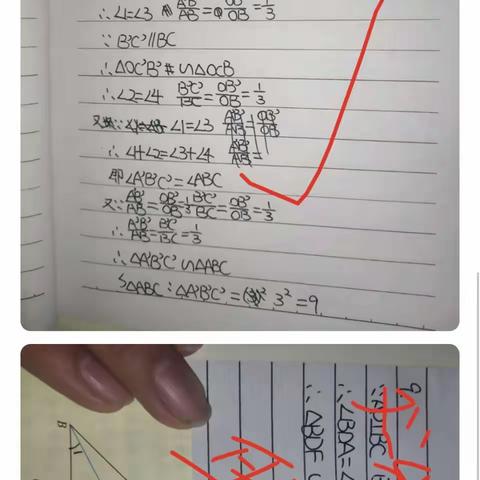 ∴∠1=∠3 A'B'/AB=OB'/OB=1/3
∵B'C'∥BC
∴△OC'B'∽△OCB
∴∠2=∠4 B'C'/BC=OB'/OB=1/3
又∵∠1=∠3
∴∠1+∠2=∠3+∠4
即∠A'B'C'=∠ABC
又∵A'B'/AB=OB'/OB=1/3 B'C'/BC=OB'/OB=1/3
∴A'B'/AB=B'C'/BC=1/3
∴△A'B'C'∽△ABC
S△ABC:△A'B'C'=3²=9
9.
∵AD⊥BC
∴∠BDA=∠
∴△BDF
B
1